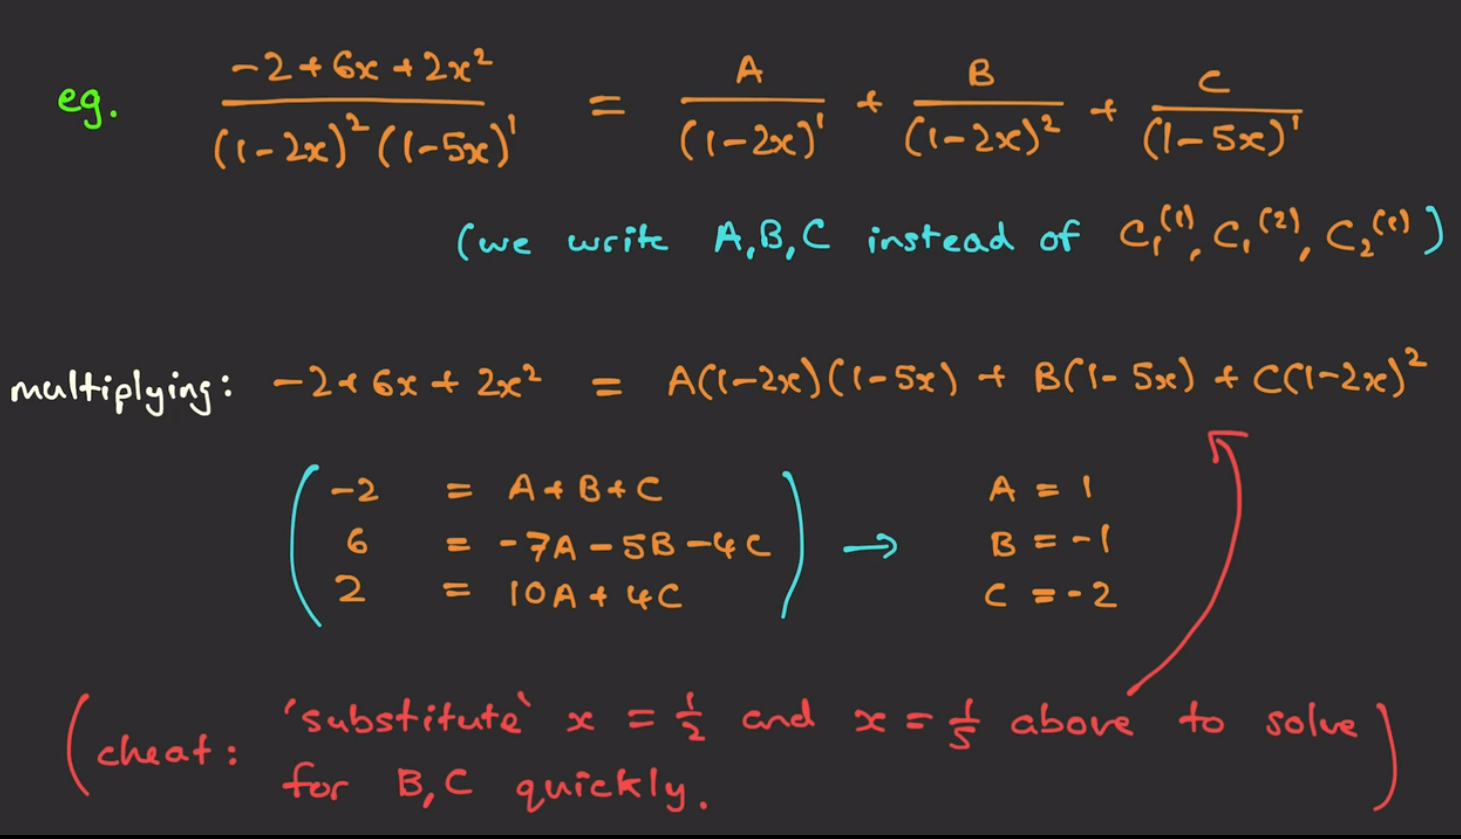 eg. (-2 + 6x + 2x²) / ((1-2x)²(1-5x)¹) = A / (1-2x)¹ + B / (1-2x)² + C / (1-5x)¹
(we write A,B,C instead of C₁⁽¹⁾, C₁⁽²⁾, C₂⁽¹⁾)
multiplying: -2 + 6x + 2x² = A(1-2x)(1-5x) + B(1-5x) + C(1-2x)²
-2 = A + B + C
6 = -7A - 5B - 4C
2 = 10A + 4C
→
A = 1
B = -1
C = -2
(cheat: 'substitute' x = 1/2 and x = 1/5 above to solve
for B,C quickly.)